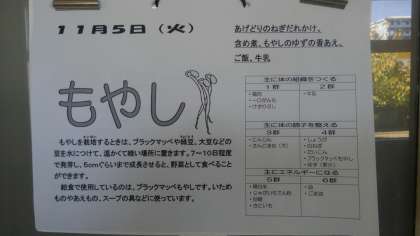 11月5日（火）
あげどりのねぎだれかけ、
含め煮、もやしのゆずの香あえ、
ご飯、牛乳
もやし
もやしを栽培するときは、ブラックマッペや緑豆、大豆などの
豆を水につけて、温かくて暗い場所に置きます。7～10日程度
で発芽し、5cmぐらいまで成長させると、野菜として食べること
ができます。
給食で使用しているのは、ブラックマッペもやしです。いため
ものやあえもの、スープの具などに使っています。
主に体の組織をつくる
1群 2群
・鶏肉 ・牛乳
主に体の調子を整える
3群 4群
・にんじん ・しょうが
・白ねぎ
・だいこん
・ブラックマッペもやし
主にエネルギーになる
5群 6群
・じゃがいもでん粉 ・ごま油
・砂糖
・さといも